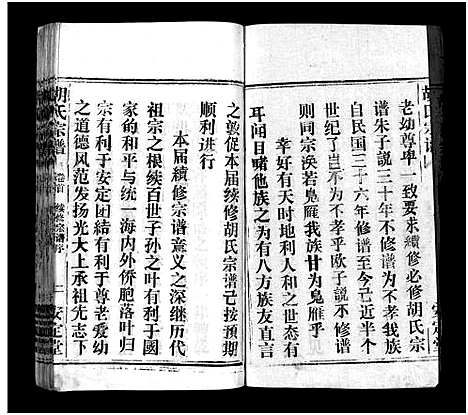 老幼尊卑一致要求續修必修胡氏宗
谱朱子説三十年不修谱為不孝我族
自民国三十六年修谱至今已近半个
世纪岂不為不孝乎欧子説不修谱
则同宗涣若鳬雁我族甘为鳬雁乎
幸好有天时地利人和之世态有
耳闻目睹他族之为有八方族友直言
之敦促本届续修胡氏宗谱已按预期
顺利进行
本届續修宗谱意义之深继历代
祖宗之根续百世子孙之叶有利于國
家的和平与统一海内外侨胞落叶归
宗有利于安定团结有利于尊老爱幼
之道德风范发扬光大上承祖先志下
胡氏宗譜
卷首
续修宗谱序
一
安定堂